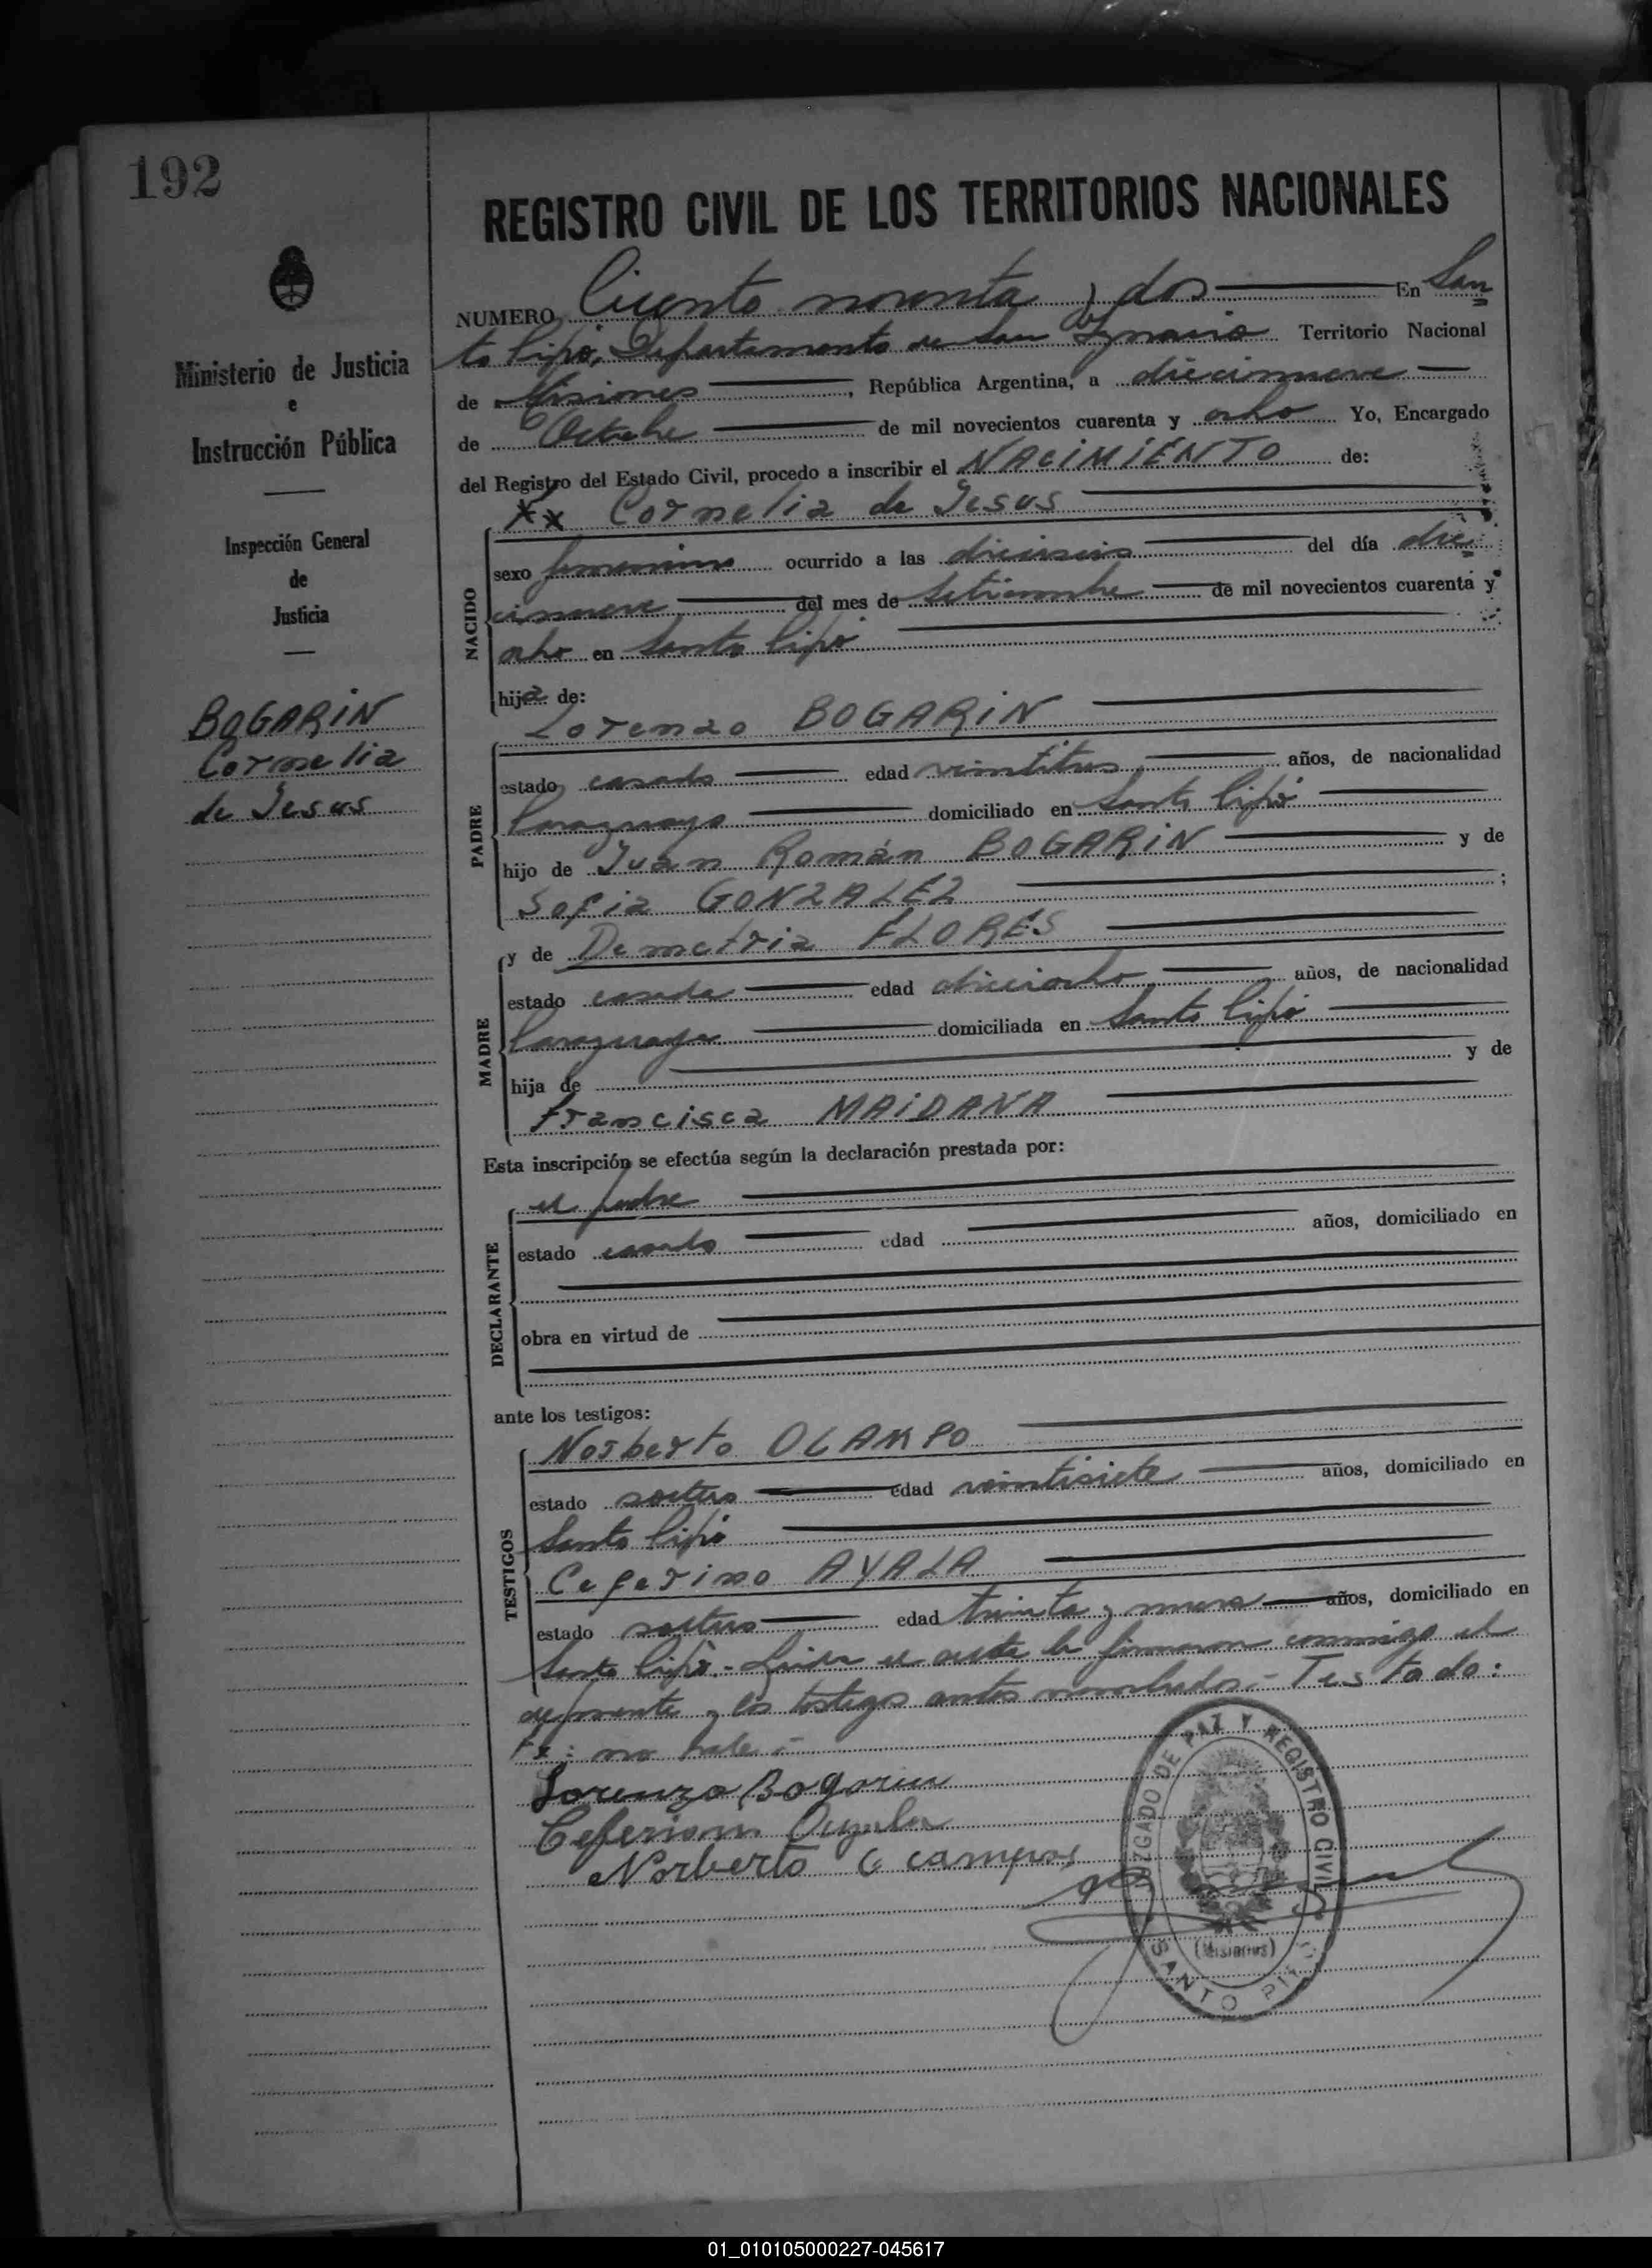 192
REGISTRO CIVIL DE LOS TERRITORIOS NACIONALES
NUMERO Ciento noventa y dos En San
to Pipó, Departamento de San Ignacio Territorio Nacional
de Misiones, República Argentina, a diecinueve
de Octubre de mil novecientos cuarenta y ocho Yo, Encargado
del Registro del Estado Civil, procedo a inscribir el NACIMIENTO de:
Ministerio de Justicia
e
Instrucción Pública
Inspección General
de
Justicia
BOGARIN
Cornelia
de Jesus
NACIDO
xx Cornelia de Jesus
sexo femenino ocurrido a las dieciseis del día die
cinueve del mes de Setiembre de mil novecientos cuarenta y
ocho en Santo Pipó
hija de:
PADRE
Lorenzo BOGARIN
estado casado edad veintitres años, de nacionalidad
Paraguaya domiciliado en Santo Pipó
hijo de Juan Román BOGARIN y de
Sofia GONZALEZ ;
MADRE
y de Demetria FLORES
estado casada edad dieciocho años, de nacionalidad
Paraguaya domiciliada en Santo Pipó
hija de y de
Francisca MAIDANA
Esta inscripción se efectúa según la declaración prestada por:
DECLARANTE
el padre
estado casado edad años, domiciliado en
obra en virtud de
ante los testigos:
TESTIGOS
Norberto OCAMPO
estado soltero edad veintisiete años, domiciliado en
Santo Pipó
Ceferino AYALA
estado soltero edad treinta y nueve años, domiciliado en
Santo Pipó.- Leida el acta la firmaron conmigo el
exponente y los testigos antes nombrados.- Testado:
xx: no vale.-
Lorenzo Bogarin
Ceferino Ayala
Norberto Ocampos
JUZGADO DE PAZ Y REGISTRO CIVIL
(Misiones)
SANTO PIPÓ
01_010105000227-045617